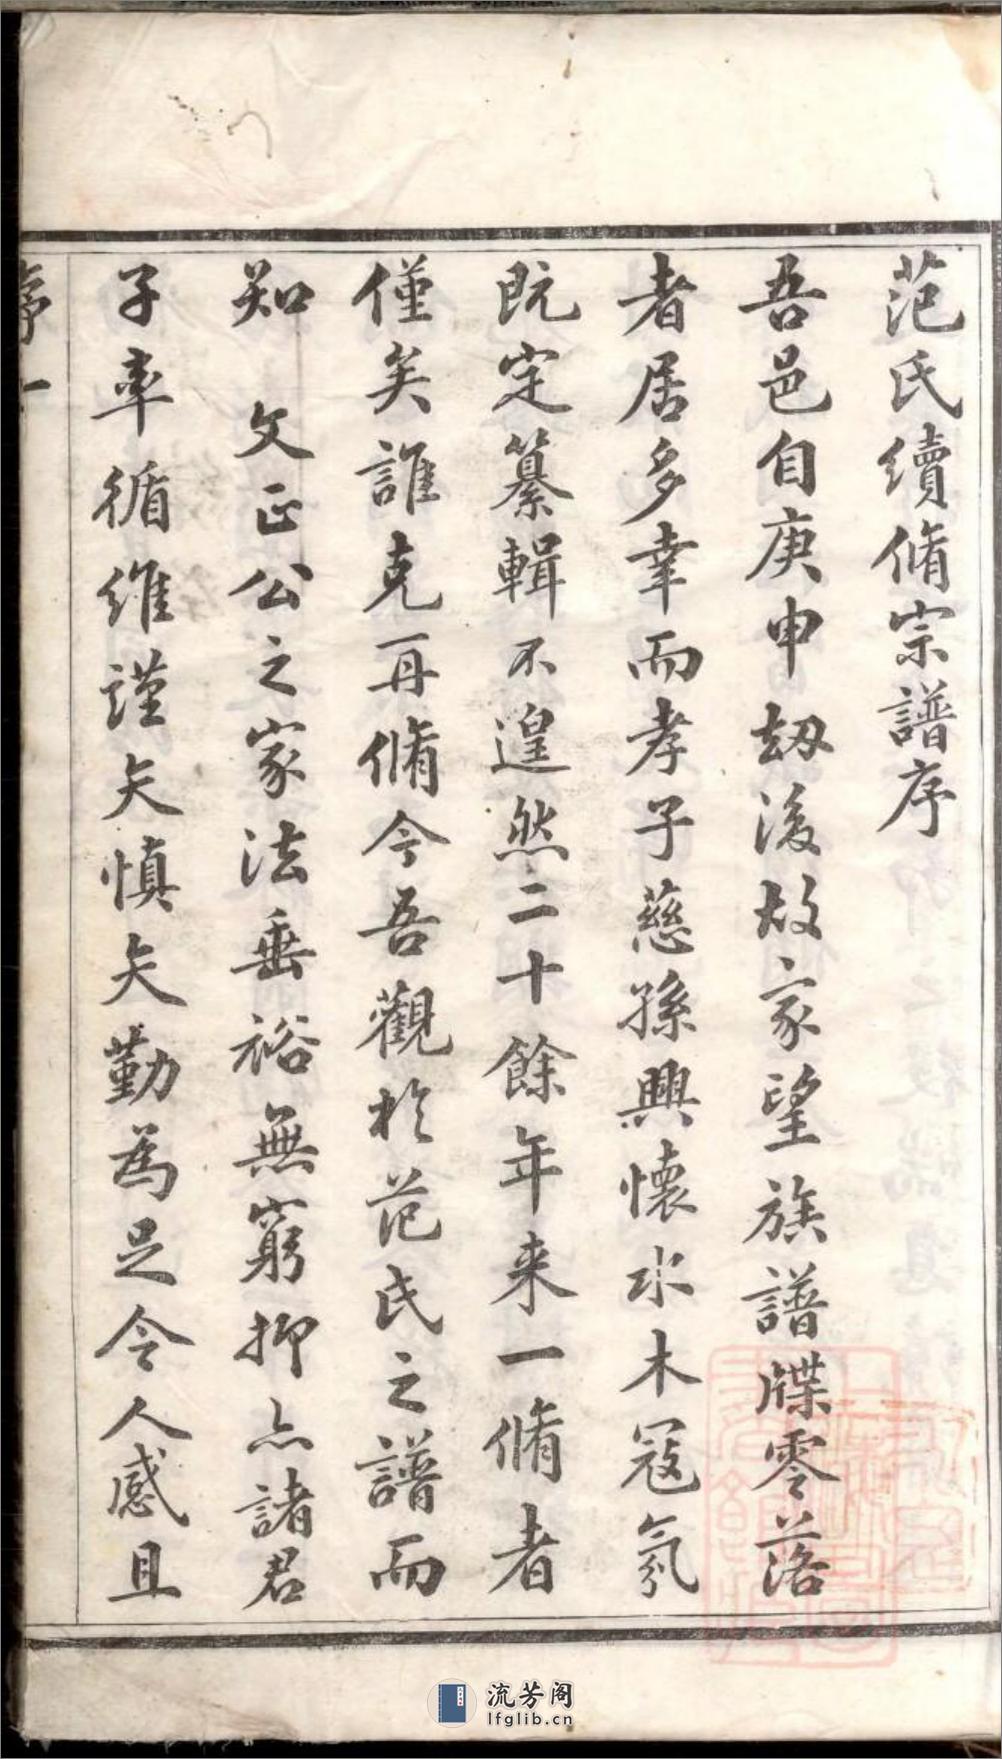 范氏續脩宗譜序
吾邑自庚申刼後故家望族譜牒零落
者居多幸而孝子慈孫興懷水木寇氛
既定纂輯不遑然二十餘年来一脩者
僅矣誰克再脩今吾觀於范氏之譜而
知 文正公之家法垂裕無窮抑亦諸君
子率循維謹矢慎矢勤為足令人感且
序 一
流芳阁
lfglib.cn